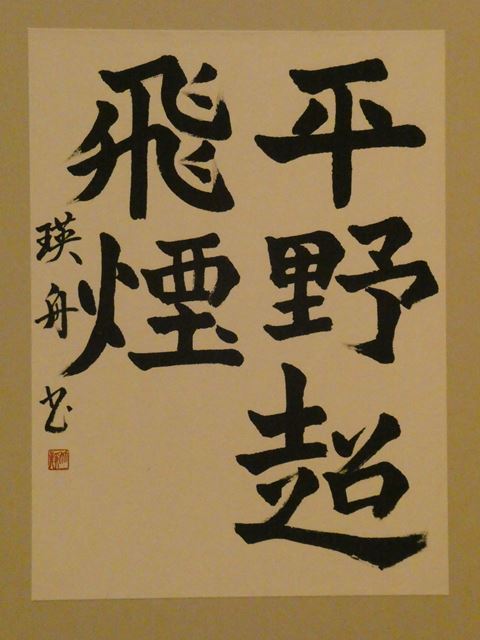 平野超
飛煙
瑛舟书